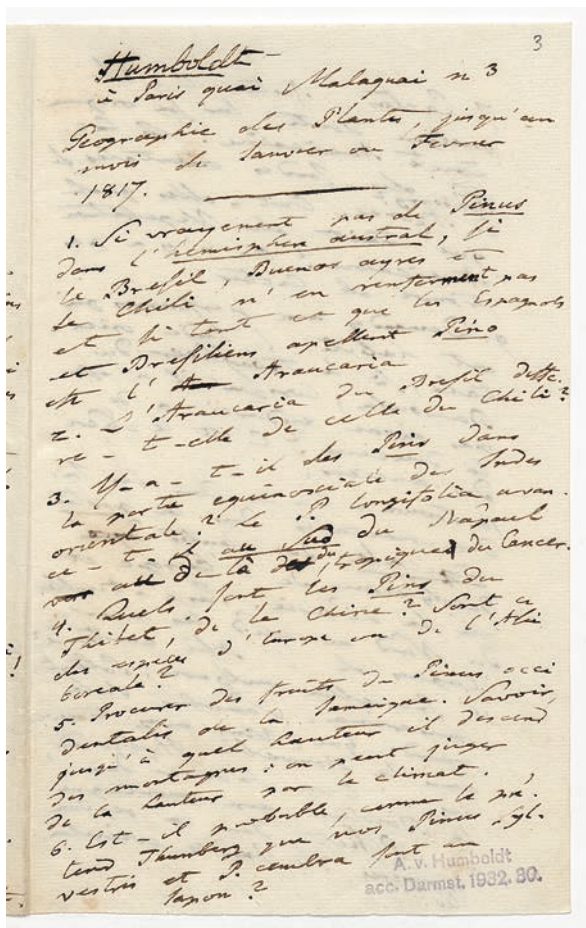 3
Humboldt
à Paris quai Malaquai n 3
Geographie des Plantes, jusqu'au
mois de Janvier ou Fevrier
1817.
1. Si vrayement pas de Pinus
dans l'hemisphere austral, si
le Bresil, Buenos ayres et
le Chili n'en renferment pas
et si tout ce que les Espagnols
et Bresiliens apellent Pino
est l' Araucaria
2. L'Araucaria du Bresil diffe-
re-t-elle de celle du Chili?
3. Y-a-t-il des Pins dans
la partie equinoxiale des Indes
orientale? Le P. longifolia avan-
ce-t-il au Sud du Nâpaul
au de la du tropique du Cancer.
4. Quels sont les Pins du
Thibet, de la Chine? Sont ce
des especes d'Europe ou de l'Asie
boreale?
5. Procurer des fruits du Pinus occi
dentalis de la Jamaique. Savoir,
jusqu'à quel hauteur il descend
des montagnes: on peut juger
de la hauteur par le climat.
6. Est-il probable, comme le pré-
tend Thunberg que nos Pinus Syl-
vestris et P. cembra sont au
Japon?
A. v. Humboldt
acc. Darmst. 1932. 30.